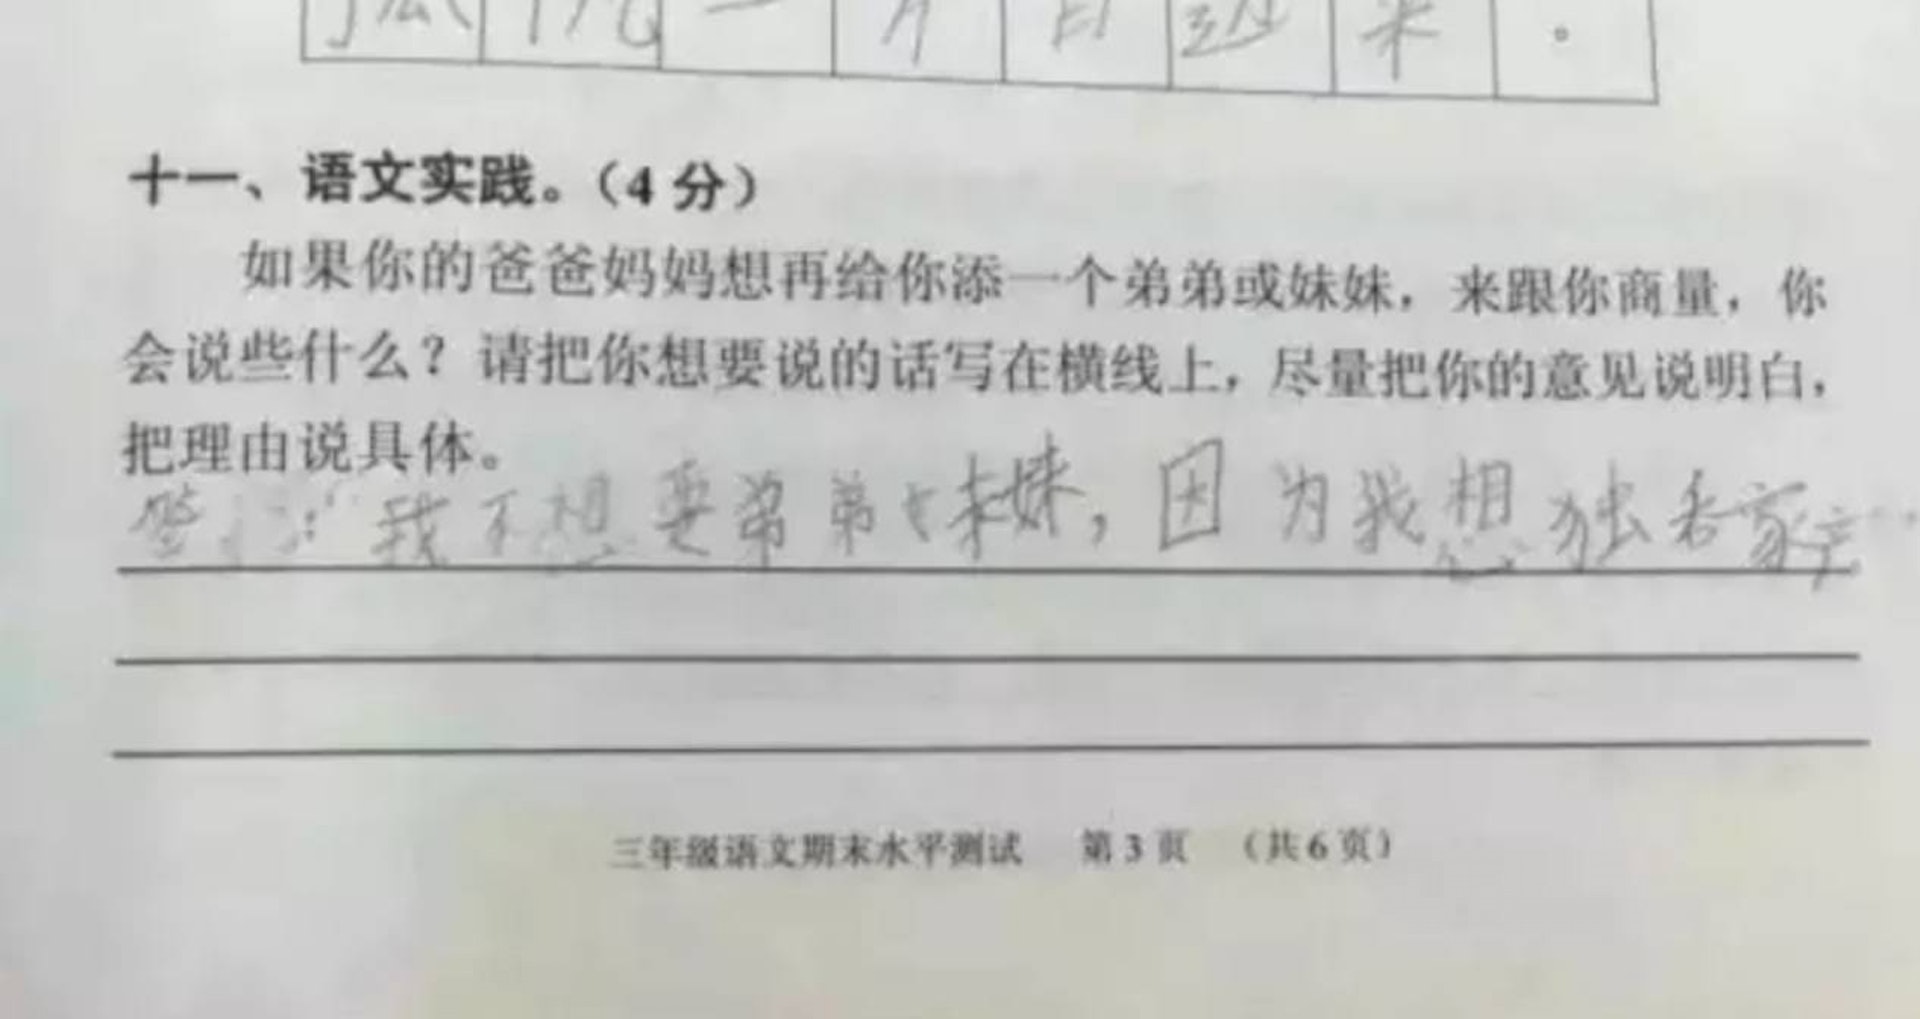 一
十一、语文实践。（4 分）
如果你的爸爸妈妈想再给你添一个弟弟或妹妹，来跟你商量，你
会说些什么？请把你想要说的话写在横线上，尽量把你的意见说明白，
把理由说具体。
我不想要弟弟妹妹，因为我想独吞家产
三年级语文期末水平测试 第3页 （共6页）